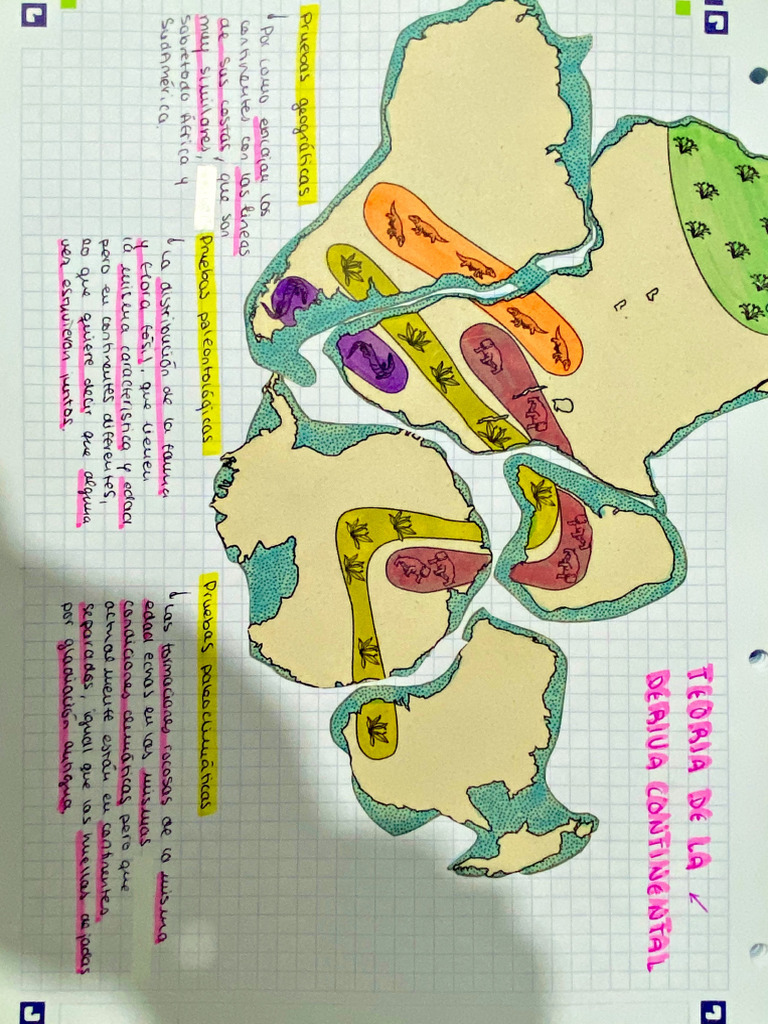 TEORIA DE LA
DERIVA CONTINENTAL
Pruebas geográficas
Por como encajan los
continentes con las líneas
de sus costas, que son
muy similares,
sobretodo África y
Sudamérica.
Pruebas paleontológicas
La distribución de la fauna
y flora fósil, que tienen
la misma característica y edad
pero en continentes diferentes,
lo que quiere decir que alguna
vez estuvieron juntos.
Pruebas paleoclimáticas
Las formaciones rocosas de la misma
edad echas en las mismas
condiciones climáticas pero que
actualmente están en continentes
separados, igual que las huellas dejadas
por glaciación antigua.